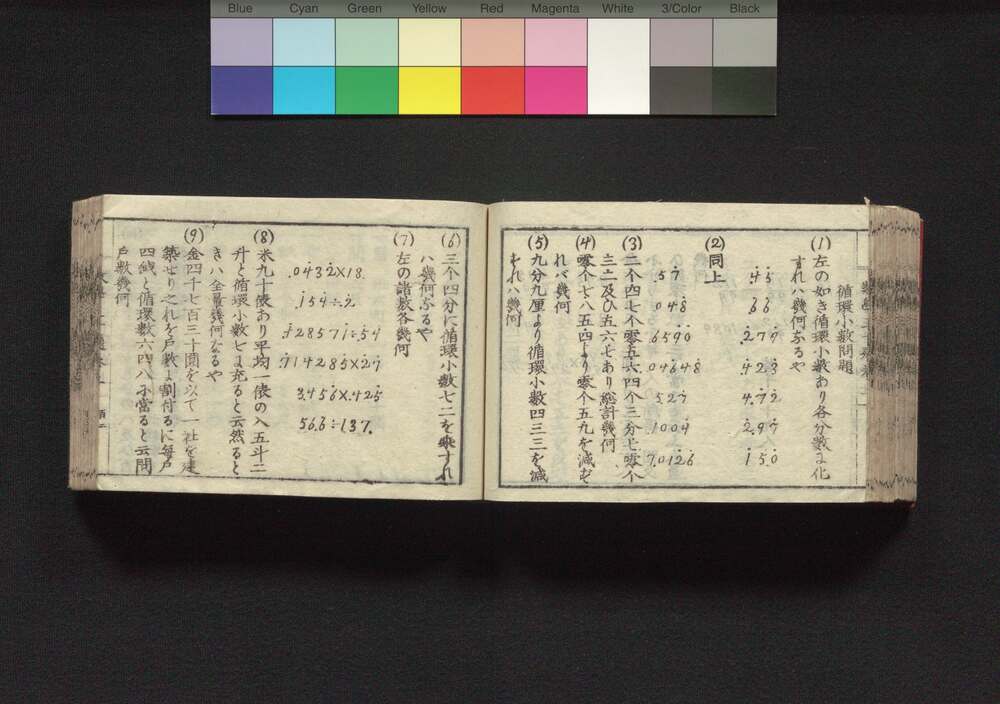 Blue Cyan Green Yellow Red Magenta White 3/Color Black
循環小数問題
(1) 左の如き循環小数あり各分数に化
すれハ幾何なるや
.4̇5̇
.6̇6̇
.2̇79̇
.4̇23̇
4.7̇2̇
2.9̇7̇
.1̇50̇
(2) 同上
.57̇
.048̇
.6590̇
.04648̇
.527̇
.1004̇
7.0126̇
(3) 二个四七个零五六四个三分七零个
三二及ひ五六七あり総計幾何
(4) 零个七八五四より零个五九を減ず
れバ幾何
(5) 九分九厘より循環小数四三三を減
ずれハ幾何
(6) 三个四分に循環小数七二を乗すれ
ハ幾何なるや
(7) 左の諸数各幾何
.04̇32̇×18.
.1̇54÷.2̇
.1̇28571̇÷.54
.7̇14285×.27̇
3.456̇×.425̇
56.6̇÷137.
(8) 米九十俵あり平均一俵の入五斗二
升と循環小数七に充ると云然ると
きハ全量幾何なるや
(9) 金四千七百三十圓を以て一社を建
築せり之れを戸数に割付るに毎戸
四銭と循環数六四八に當ると云問
戸数幾何